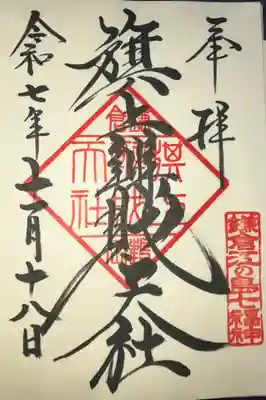 奉拝
鎌倉江の島七福神
旗上辨財天社
令和七年十一月十八日